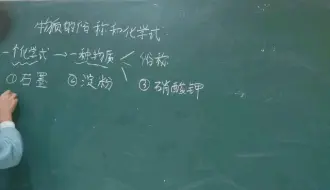 物质的俗称和化学式:
一个化学式→一种物质<俗称
①石墨 ②淀粉 ③硝酸钾